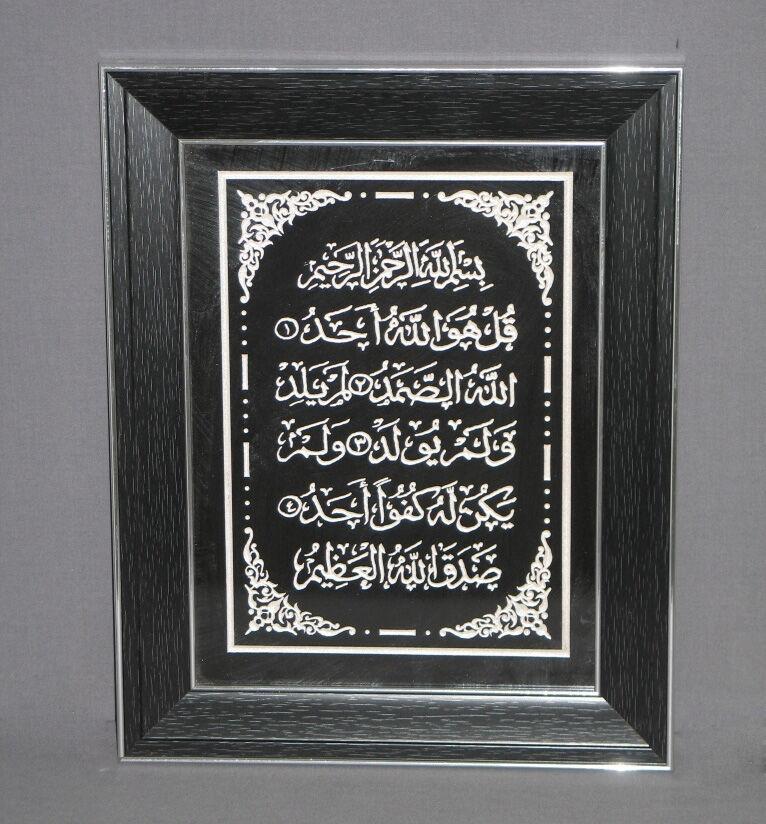 بِسْمِ اللَّهِ الرَّحْمَنِ الرَّحِيمِ
قُلْ هُوَ اللَّهُ أَحَدٌ ١
اللَّهُ الصَّمَدُ ٢ لَمْ يَلِدْ
وَلَمْ يُولَدْ ٣ وَلَمْ
يَكُن لَّهُ كُفُوًا أَحَدٌ ٤
صَدَقَ اللَّهُ الْعَظِيمُ